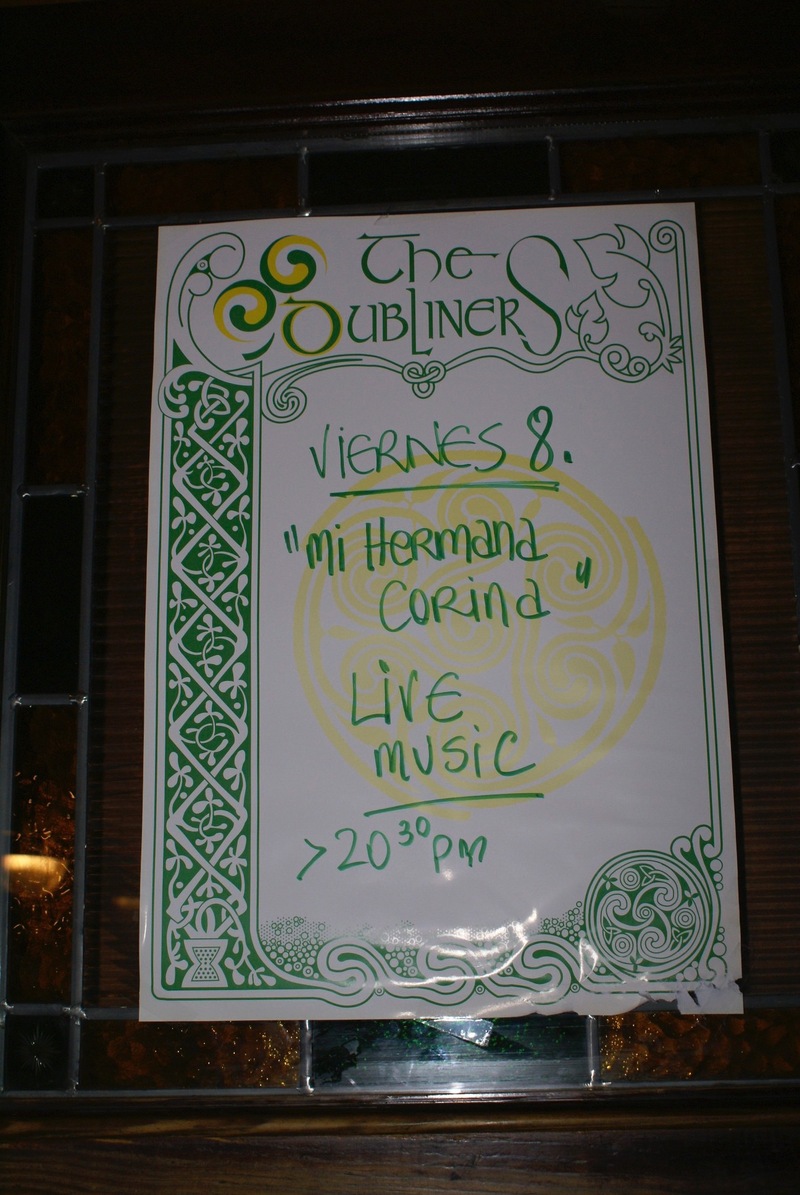 The
Dubliners
Viernes 8.
"mi Hermana
Corina"
Live
music
>20³⁰pm